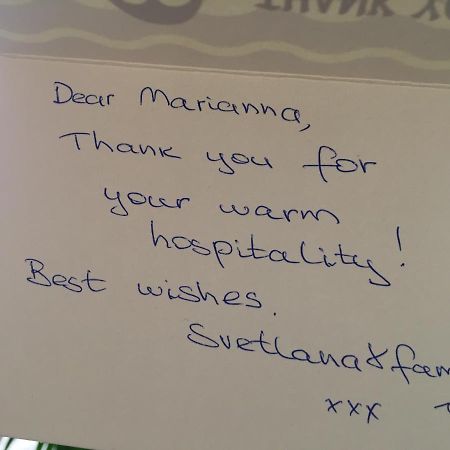 THANK YO
Dear Marianna,
Thank you for
your warm
hospitality!
Best wishes.
Svetlana & fam
xxx